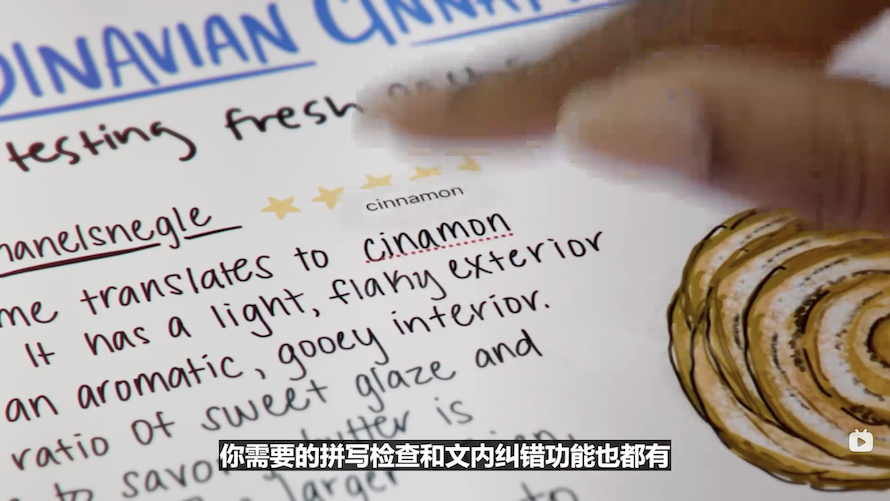 DINAVIAN CINNAM
testing fresh
hanelsnegle
cinnamon
me translates to cinamon
It has a light, flaky exterior
an aromatic, gooey interior.
ratio of sweet glaze and
to savo butter is
larger
to
你需要的拼写检查和文内纠错功能也都有